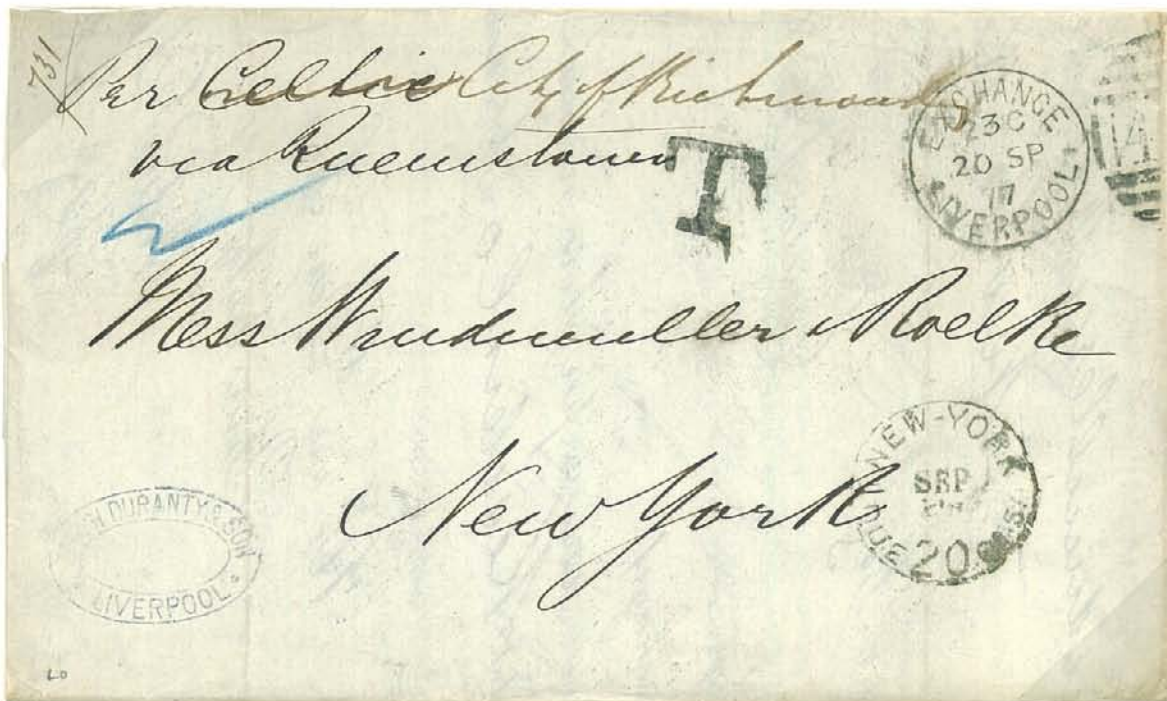 731
Per Celtic City of Richmond
via Queenstown
T
EXCHANGE
23 C
20 SP
77
LIVERPOOL
Mess Windmuller & Roelke
New York
NEW-YORK
SEP
DUE 20 CTS
H DURANTY & SON
LIVERPOOL